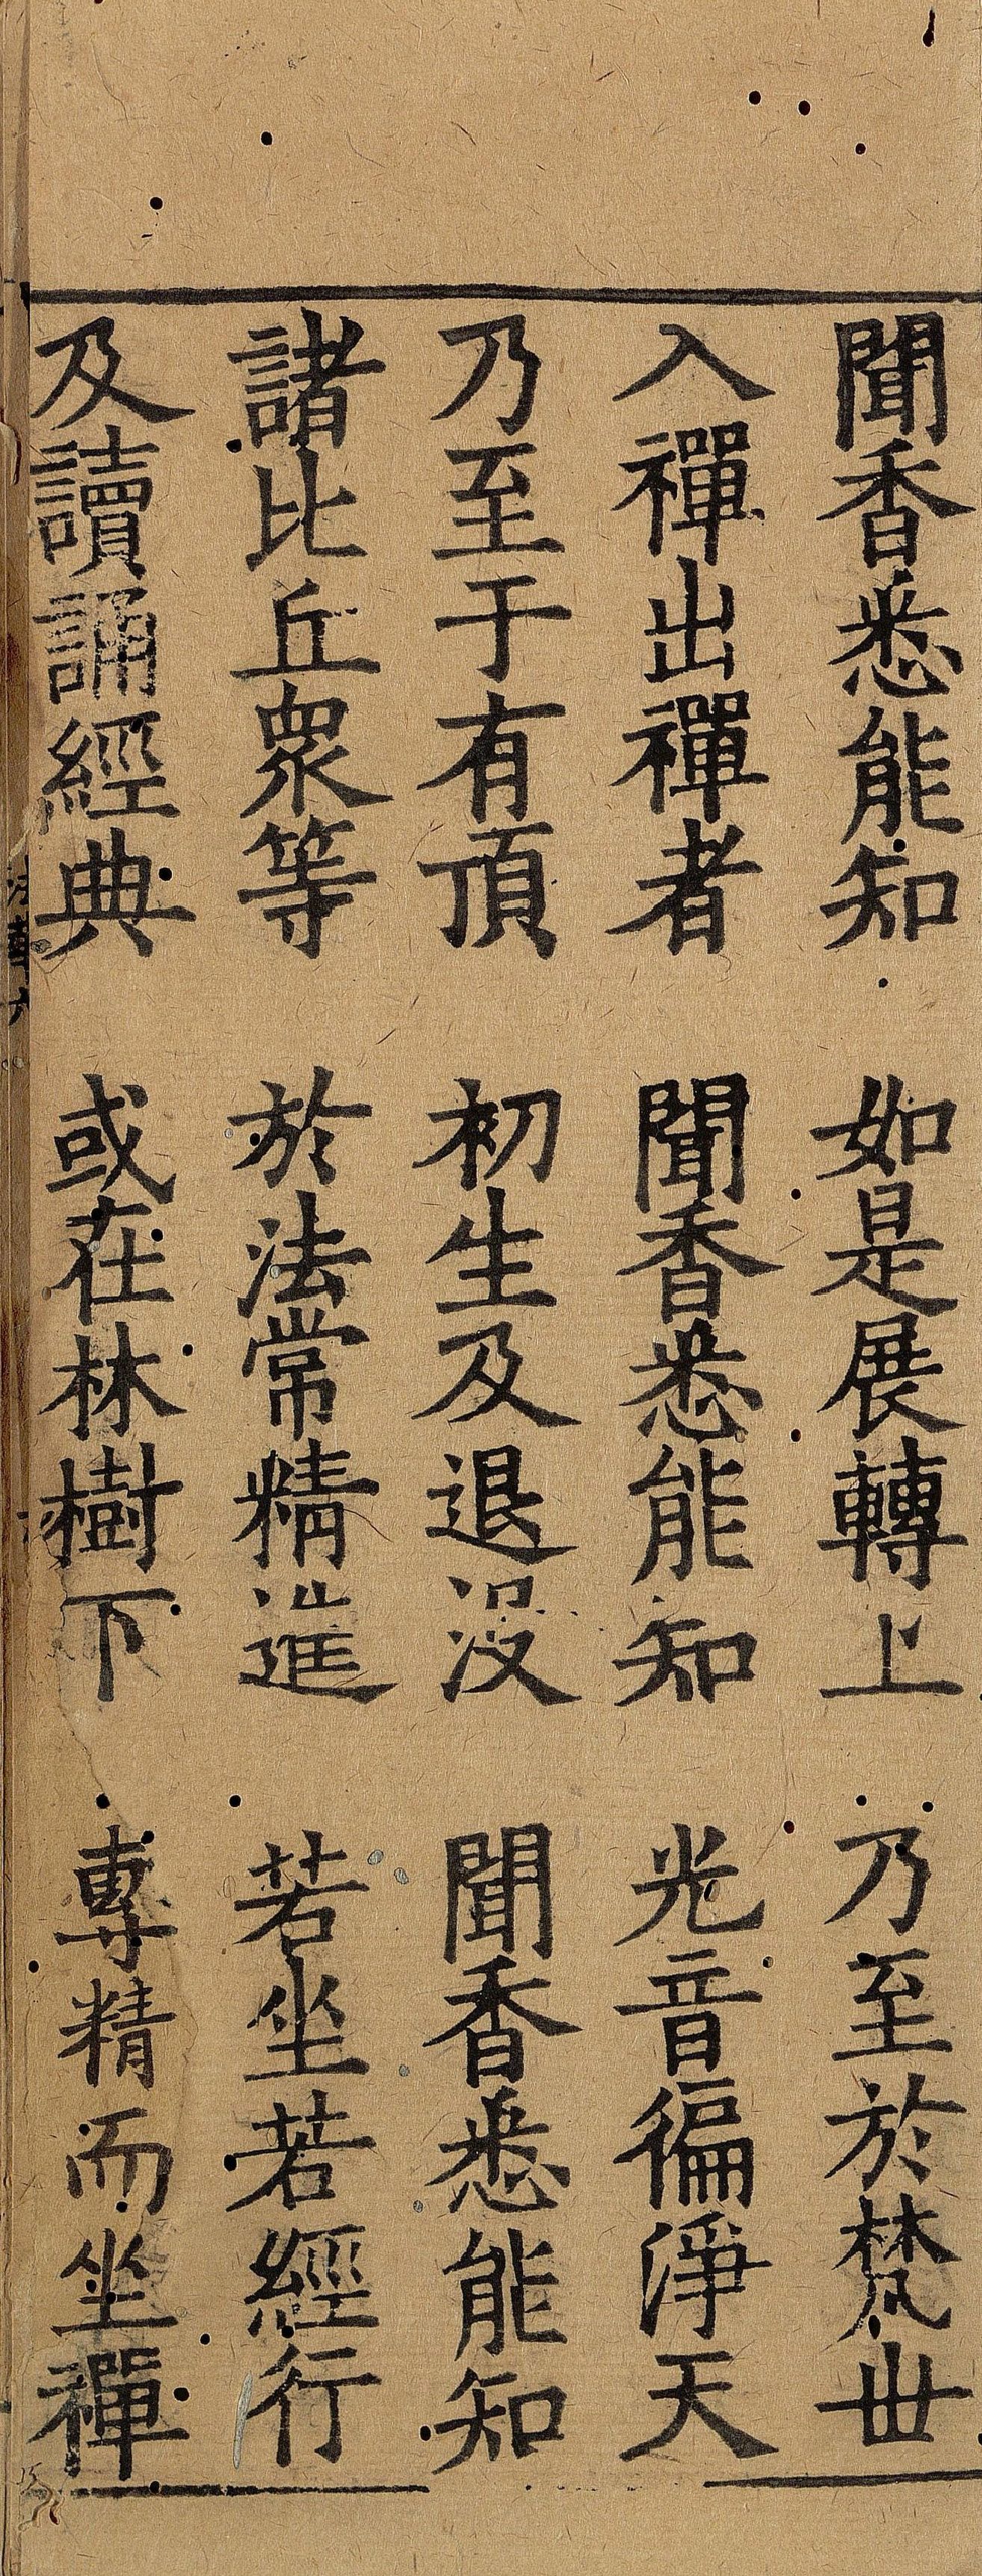 聞香悉能知　如是展轉上　乃至於梵世
入禪出禪者　聞香悉能知　光音徧淨天
乃至于有頂　初生及退沒　聞香悉能知
諸比丘衆等　於法常精進　若坐若經行
及讀誦經典　或在林樹下　專精而坐禪